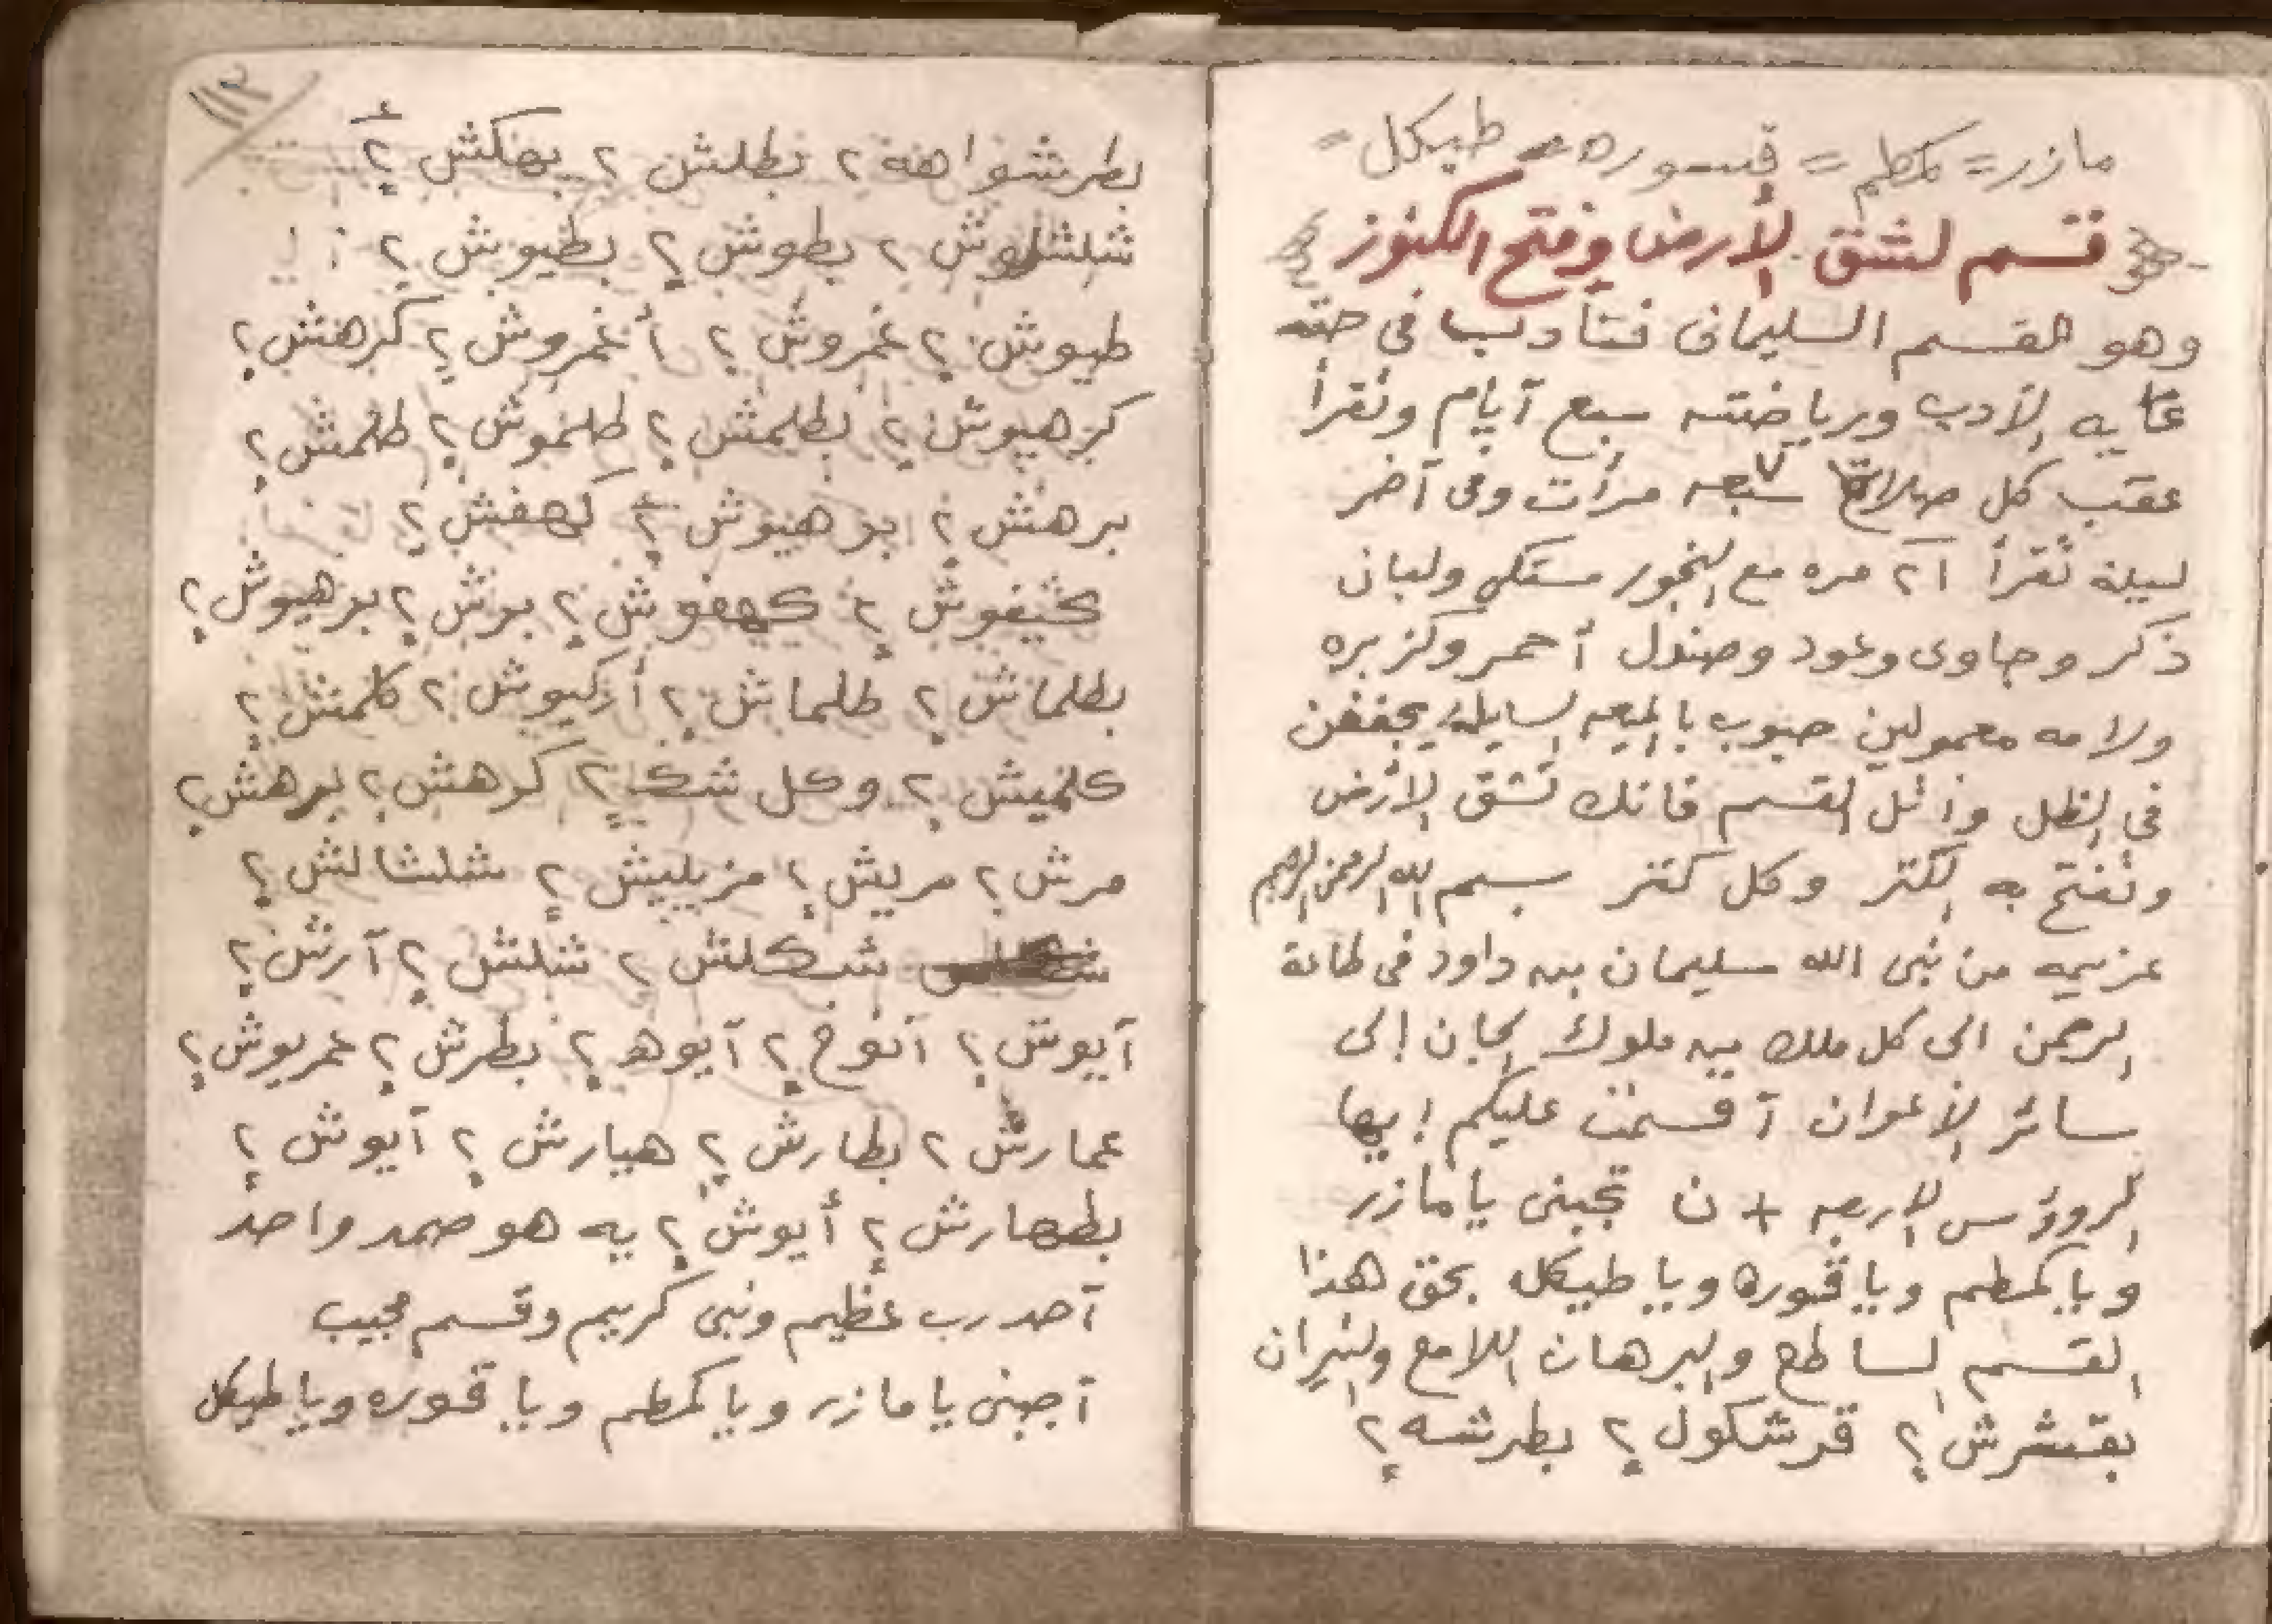 مازر = كمطم = قسوره = طيكل =
قسم لشق الأرض وفتح الكنوز
وهو القسم السليمانى فتأدب فى حقه
غايه الأدب ورياضته سبع آيام وتقرأ
عقب كل صلاة ٧ سبعه مرات وفى آخر
ليلة تقرأ ٢١ مره مع البخور مستكى ولبان
ذكر وجاوى وعود وصندل أحمر وكزبره
ولامه معمولين حبوب بالميعه السايله يجففن
فى الظل واتل القسم فانك تشق الأرض
وتفتح به الكنز وكل كنز بسم الله الرحمن الرحيم
عزيمه من نبى الله سليمان بن داود فى طاعة
الرحمن الى كل ملك من ملوك الجان إلى
سائر الأعوان آقسمت عليكم إيها
الرووس الأربعه + ن تجبنى يا مازر
ويا كمطم ويا قسوره ويا طيكل بحق هذا
القسم الساطع والبرهان اللامع والنيران
بقشرش ٢ قرشكول ٢ بطرشه ٢
بطرشواهنة ٢ بطلش ٢ بهكش ٢
شلشلوش ٢ بطوش ٢ بطيوش ٢
طيوش ٢ غمروش ٢ أغمروش ٢ كرهش ٢
كرهيوش ٢ بطلمش ٢ طلموش ٢ طلمش ٢
برهش ٢ برهيوش ٢ كهفش ٢
كثيفوش ٢ كهفوش ٢ بوش ٢ برهيوش ٢
بطلماش ٢ طلماش ٢ أركيوش ٢ كلمش ٢
كلميش ٢ وكل شك ٢ كرهش ٢ برهش ٢
مرش ٢ مريش ٢ مزيليش ٢ شلشالش ٢
شكلش ٢ شلش ٢ آرش ٢
آيوش ٢ آنوخ ٢ آيوه ٢ بطرش ٢ عمريوش ٢
عمارش ٢ بطارش ٢ هيارش ٢ آيوش ٢
بطهارش ٢ أيوش ٢ يه هو صمد واحد
آحد رب عظيم ونبى كريم وقسم مجيب
آجبنى يا مازر ويا كمطم ويا قسوره ويا طيكل